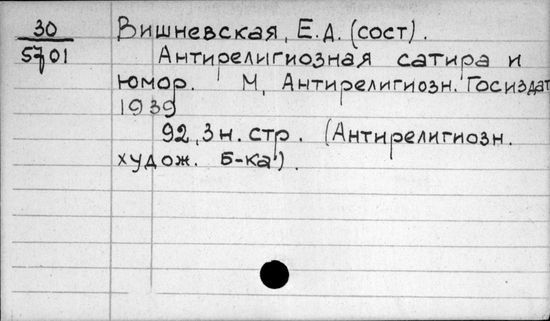 30
5701
Вишневская, Е.Д. (сост).
Антирелигиозная сатира и
юмор. М, Антирелигиозн. Госиздат
1939
92, 3 н. стр. (Антирелигиозн.
худож. б-ка).